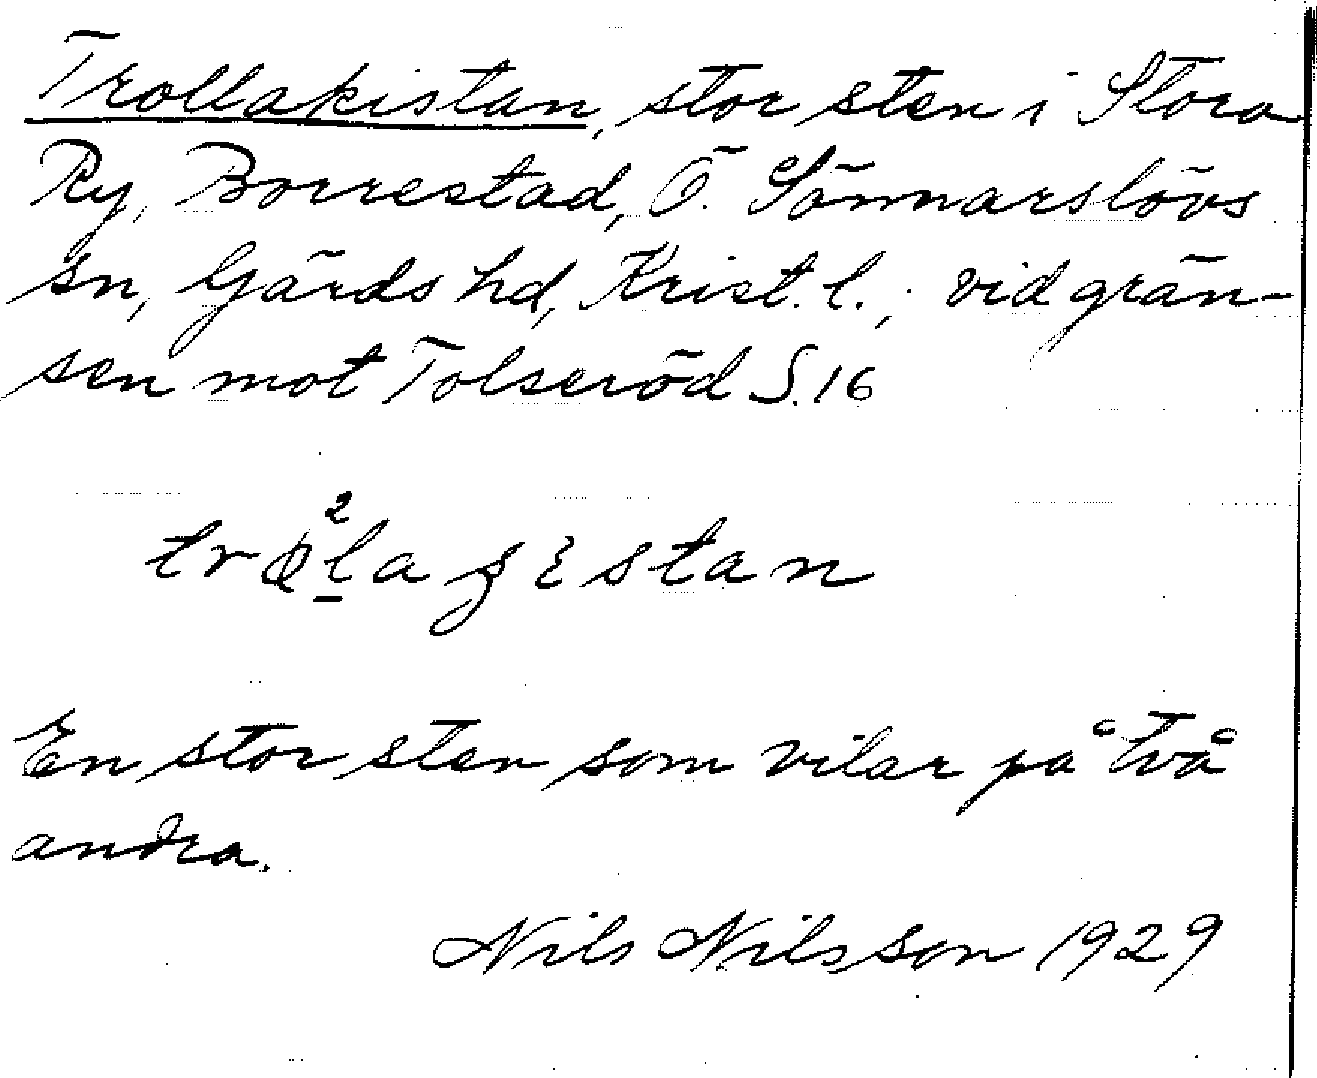 Trollakistan, stor sten i Stora
Ry, Borrestad, Ö. Sönnarslövs
sn, Gärds hd, Krist. l., vid grän-
sen mot Tolseröd S. 16
En stor sten som vilar på två
andra.
Nils Nilsson 1929